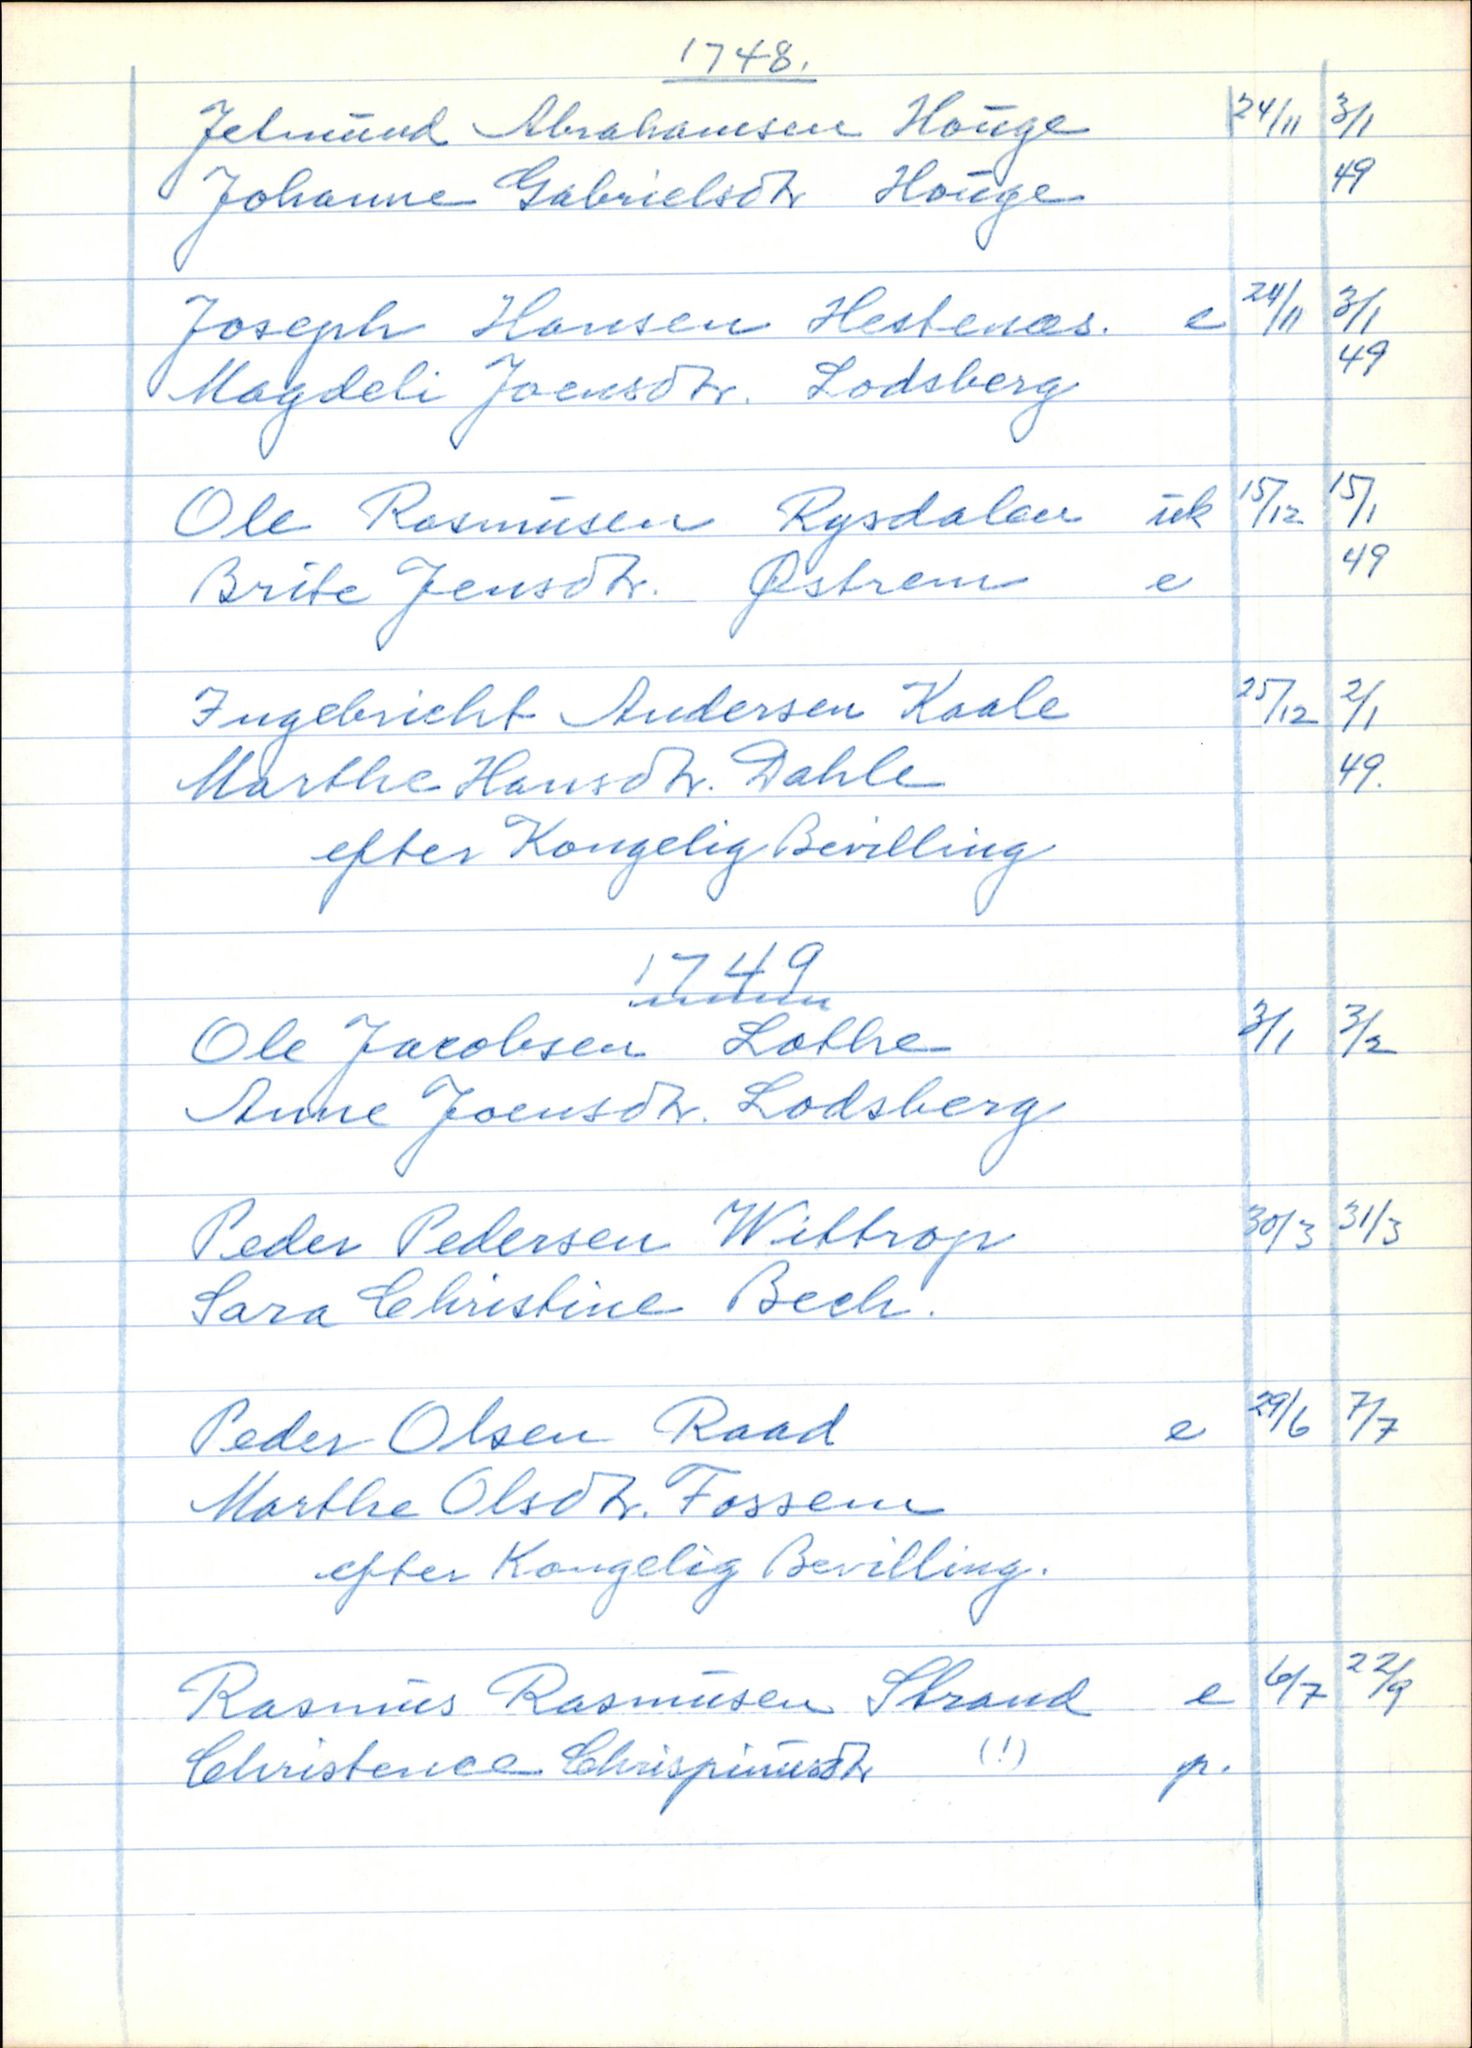 1748.
Jetmund Abrahamsen Houge 24/11 3/1
Johanne Gabrielsdtr Houge 49
Joseph Hansen Hestenæs. e 24/11 3/1
Magdeli Joensdtr. Lodsberg 49
Ole Rasmusen Rysdalen uk 15/12 15/1
Brite Jensdtr. Østrem e 49
Ingebricht Andersen Kaale 25/12 2/1
Marthe Hansdtr. Dahle 49.
efter Kongelig Bevilling
1749
Ole Jacobsen Lothe 3/1 3/2
Anne Joensdtr. Lodsberg
Peder Pedersen Wittrop 30/3 31/3
Sara Christine Bech.
Peder Olsen Raad e 29/6 7/7
Marthe Olsdtr. Fossem
efter Kongelig Bevilling.
Rasmus Rasmusen Strand e 6/7 22/9
Christence Chrispinusdtr (!) p.